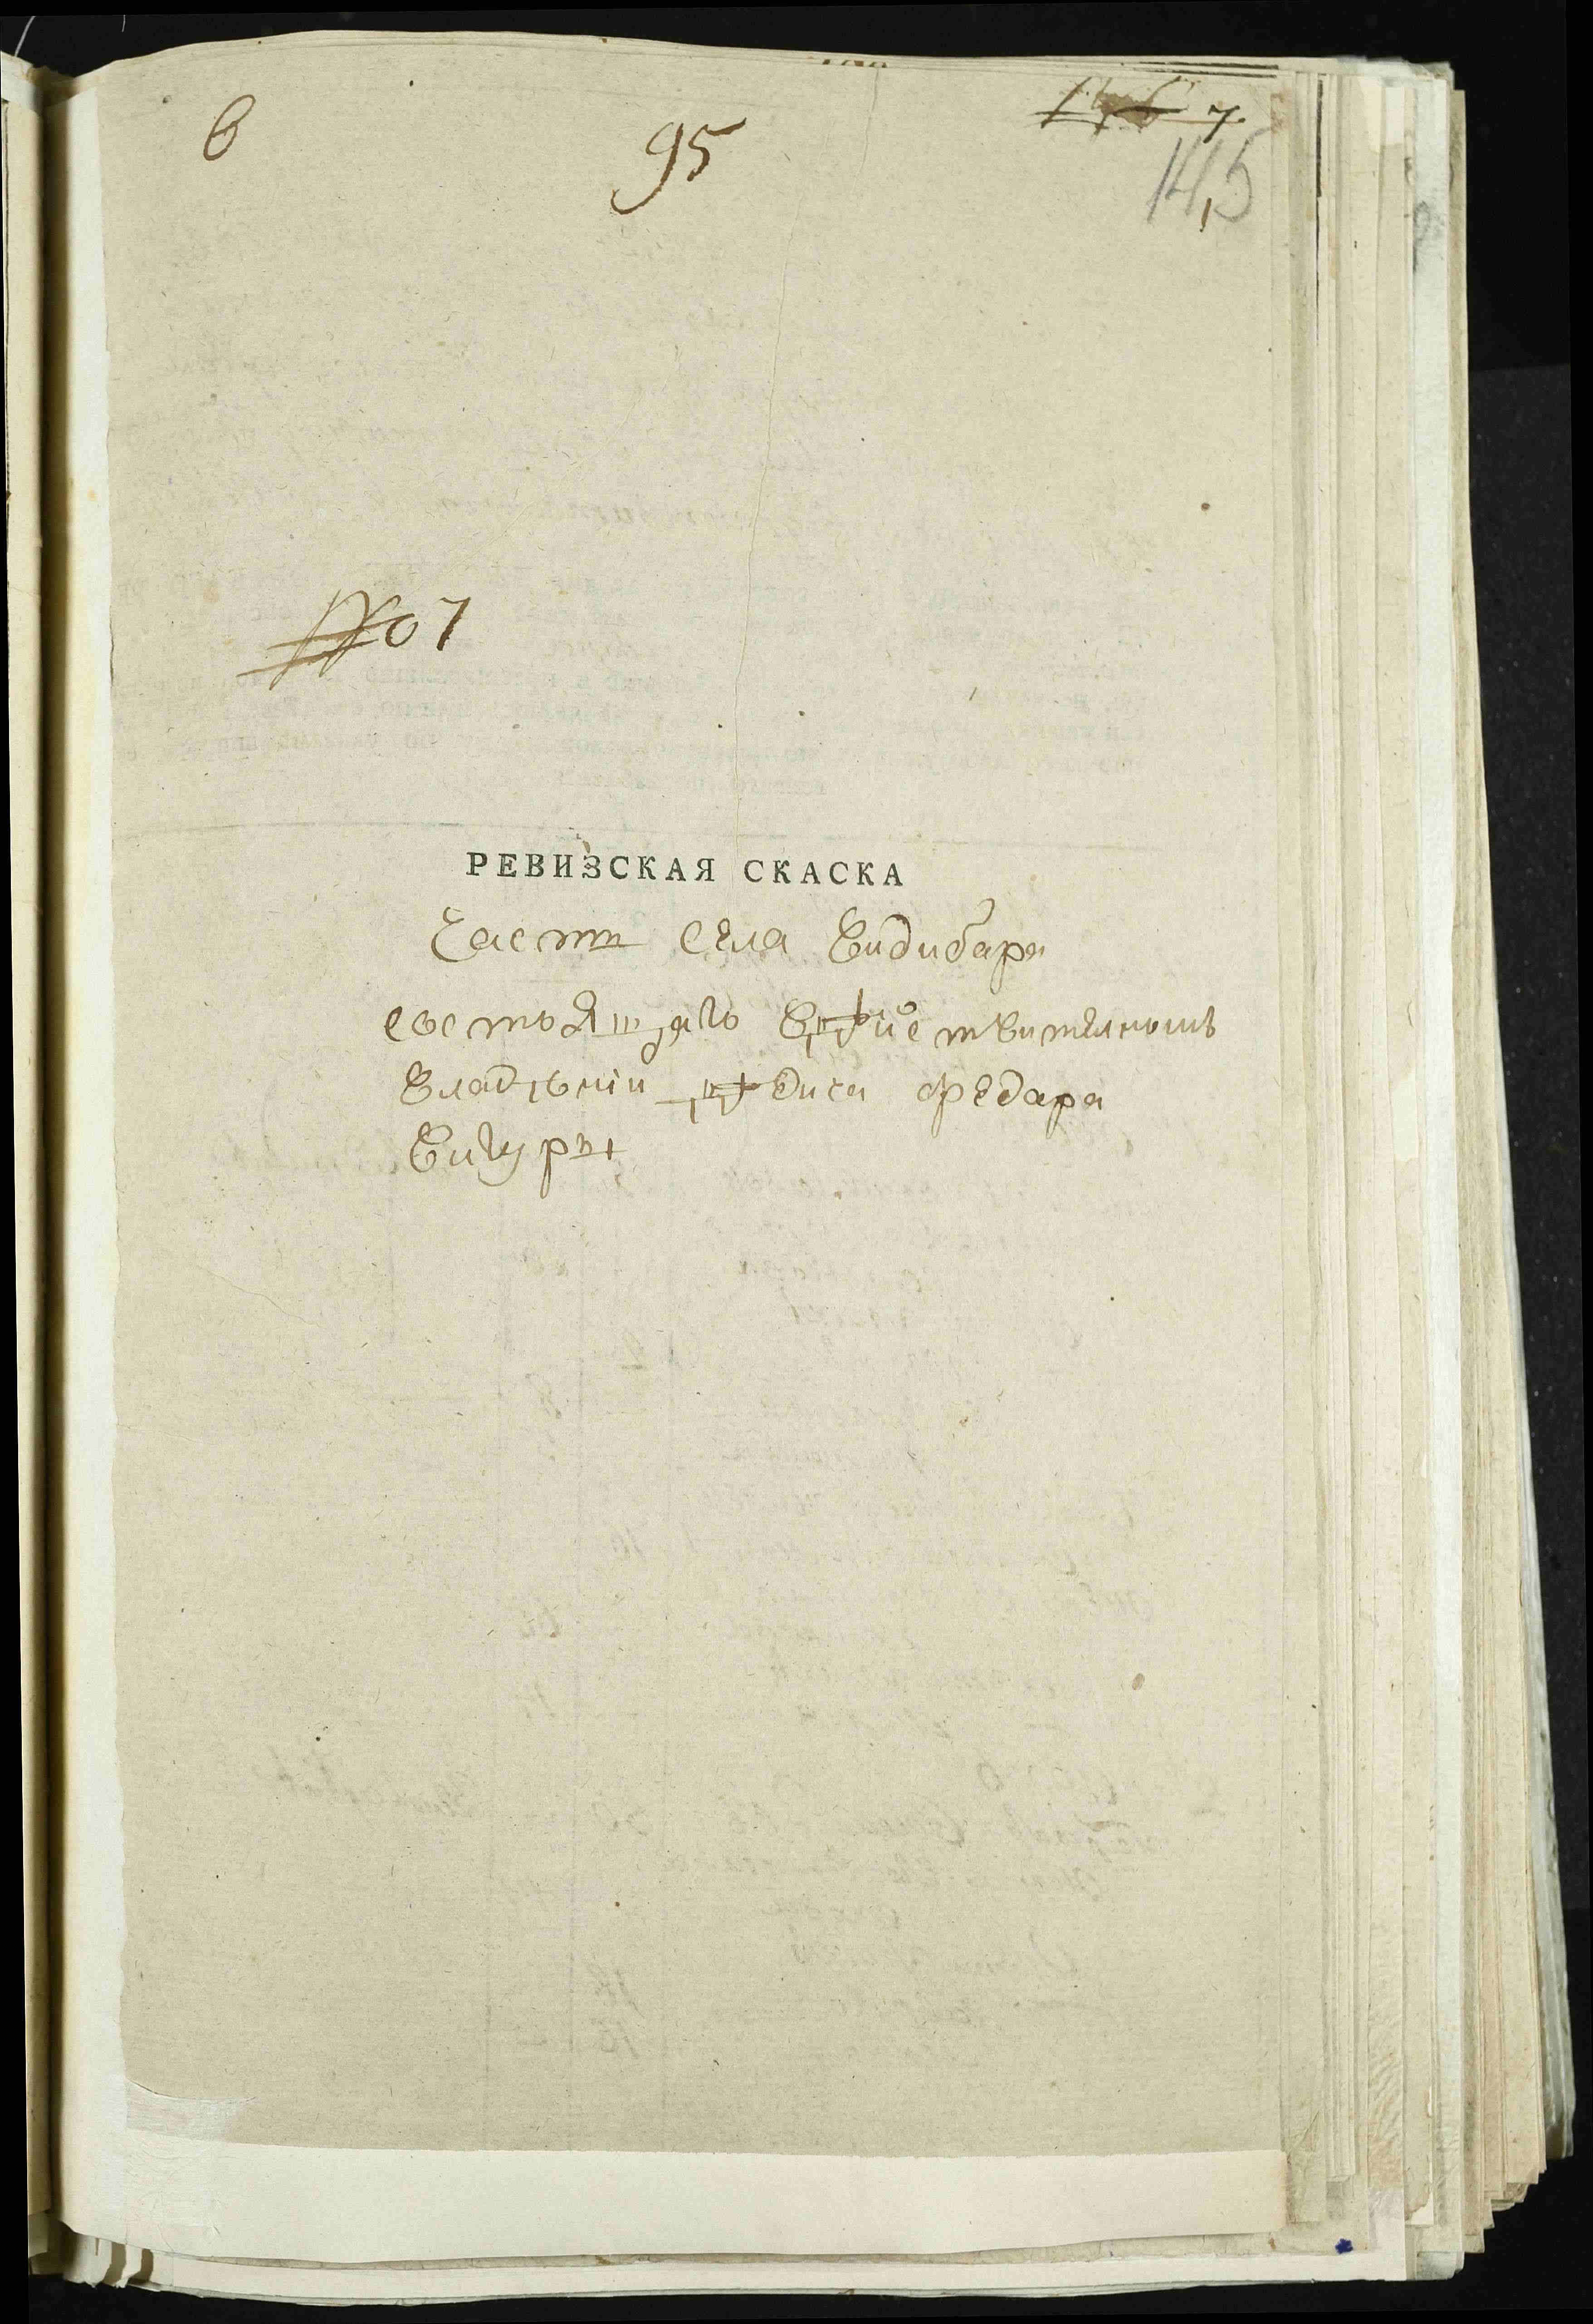 в 95 7.
14,5
№ 07
РЕВИЗСКАЯ СКАСКА
Части села Видибара
состоящаго вдѣйствителномъ
владѣнии федара
Вигуры